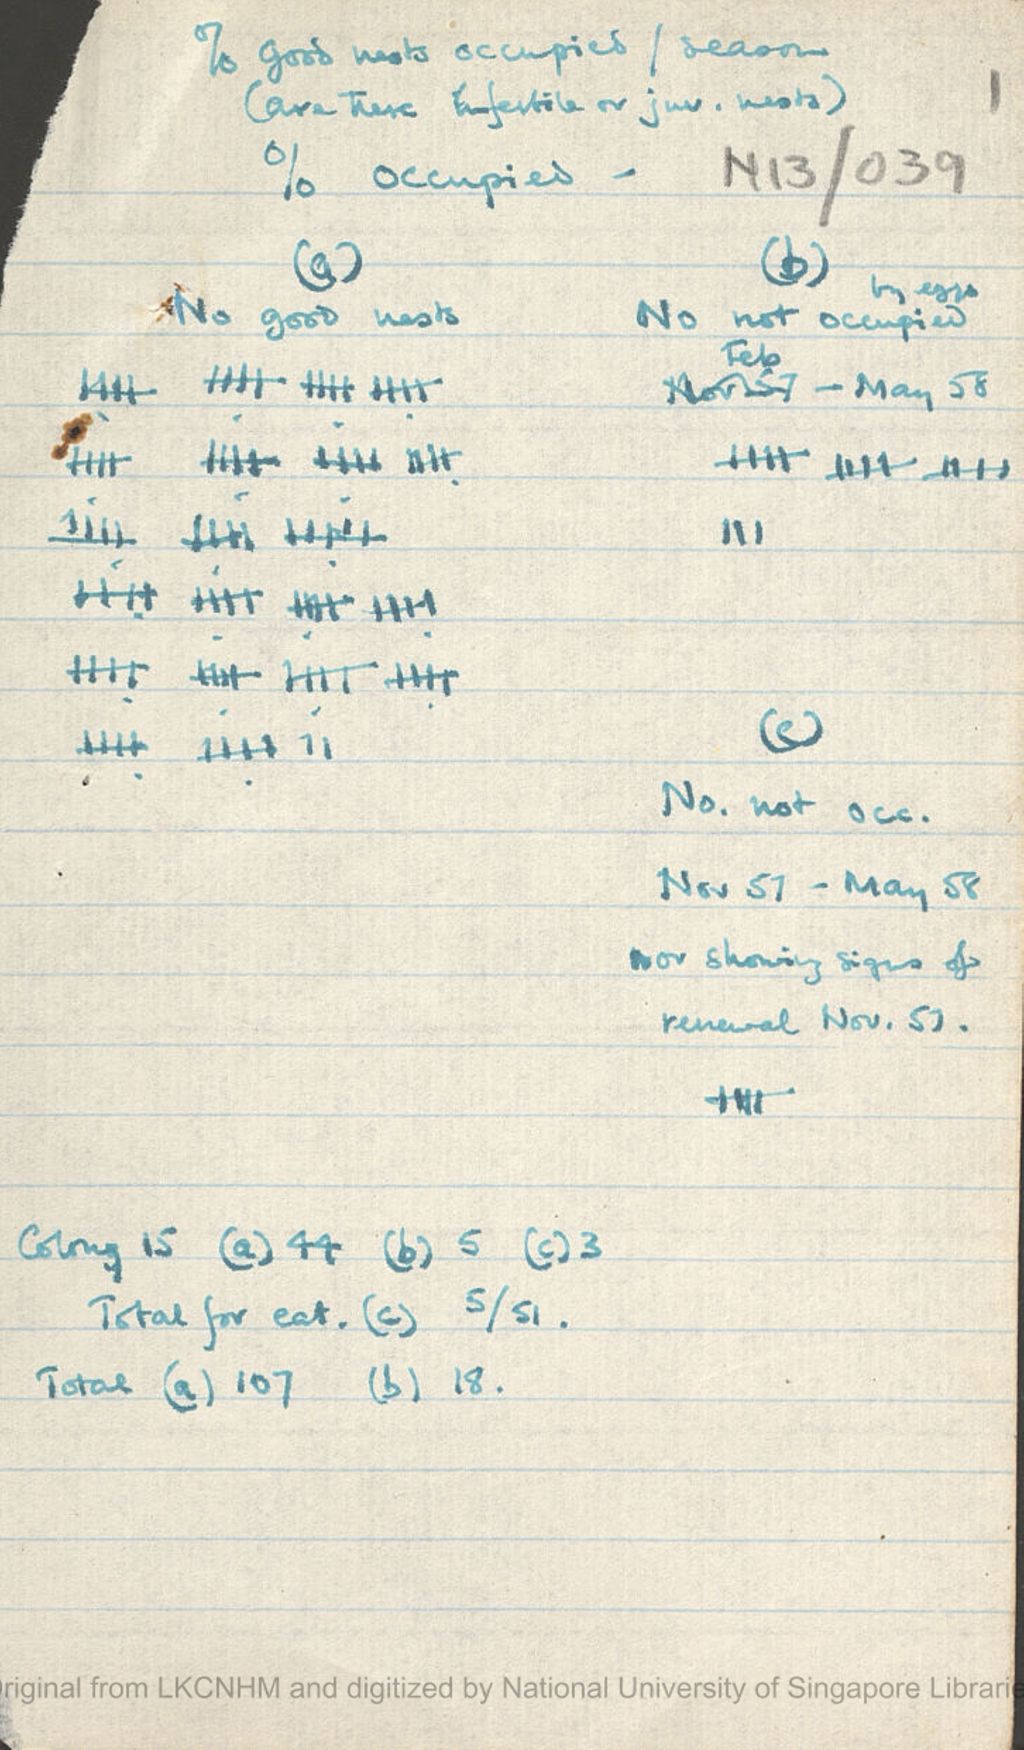 % good nests occupied / season
(are there infertile or juv. nests)
1
% occupied - N13/039
(a)
No good nests
(b)
by eggs
No not occupied
Feb
Nov 57 - May 58
(c)
No. not occ.
Nov 57 - May 58
nor showing signs of
renewal Nov. 57.
Colony 15 (a) 44 (b) 5 (c) 3
Total for cat. (c) 5/51.
Total (a) 107 (b) 18.
Original from LKCNHM and digitized by National University of Singapore Libraries